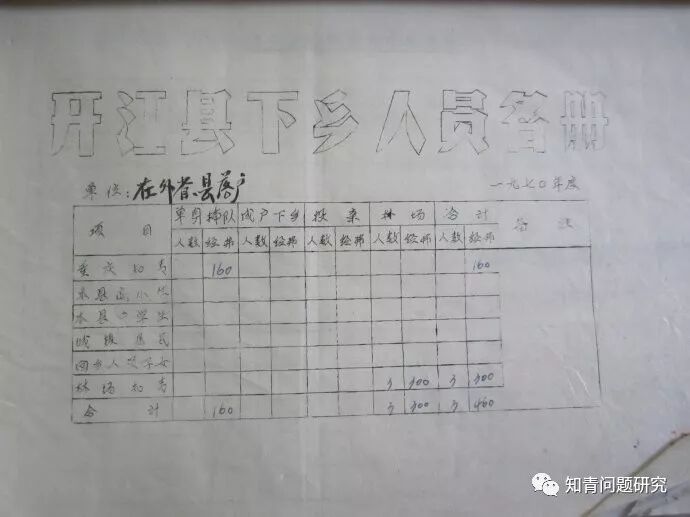 开江县下乡人员名册
单位:在外省县落户 一九七〇年度
项目 单身插队 成户下乡 投亲 林场 合计 备注
人数 经费 人数 经费 人数 经费 人数 经费 人数 经费
重庆知青 160 160
本县
本县 学生
城镇居民
回乡人员子女
林场知青 3 300 3 300
合计 160 3 300 3 460
知青问题研究